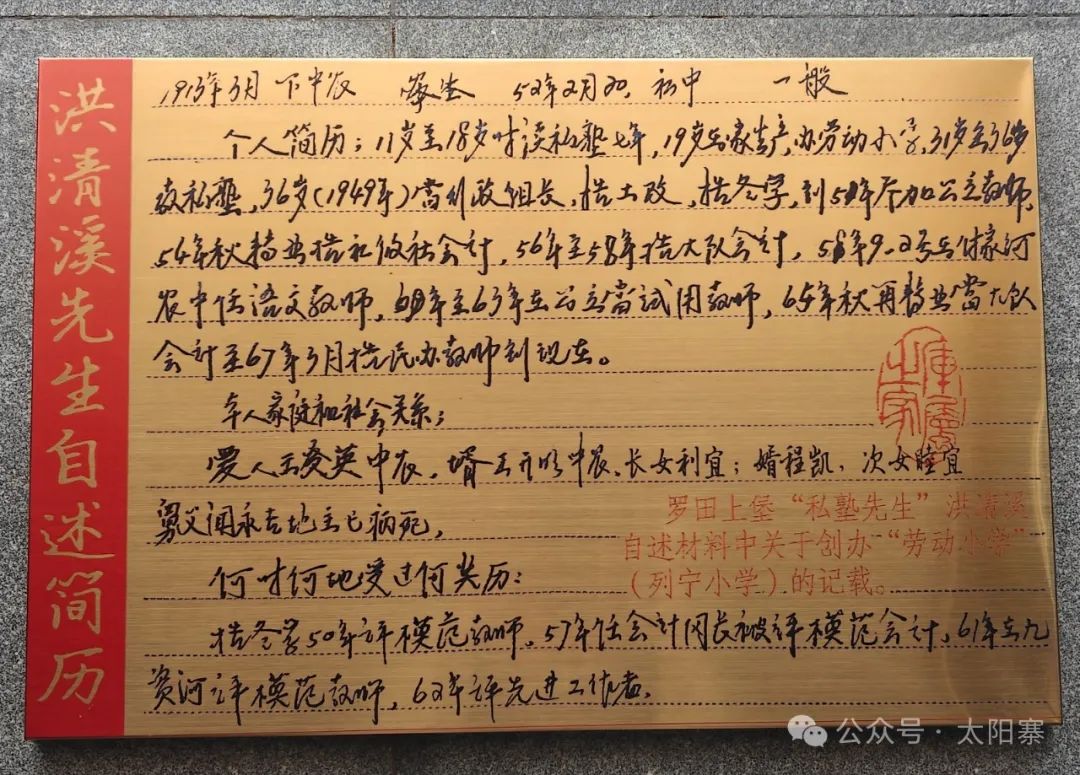 洪清溪先生自述简历
1913年3月 下中农 52年2月 初中 一般
个人简历：11岁至18岁时读私塾七年，19岁在家生产，办劳动小学，31岁至36岁
教私塾，36岁（1949年）当行政组长，搞土改，搞冬学，到51年参加公立教师，
54年秋转业搞社会计，56年至58年搞大队会计，58年9-2号在付家河
农中任语文教师，年至63年在公立当试用教师，65年秋再转业当大队
会计至67年3月搞民办教师到现在。
本人家庭和社会关系；
爱人王爱英中农，婿王中农、长女利宜；婿程凯，次女宜
舅父闻永吉地主已病死，
何时何地受过何奖历：
搞冬学50年评模范教师，57年任会计网长被评模范会计，61年在九
资河评模范教师，62年评先进工作者，
罗田上堡“私塾先生”洪清溪
自述材料中关于创办“劳动小学”
（列宁小学）的记载。
公众号·太阳寨